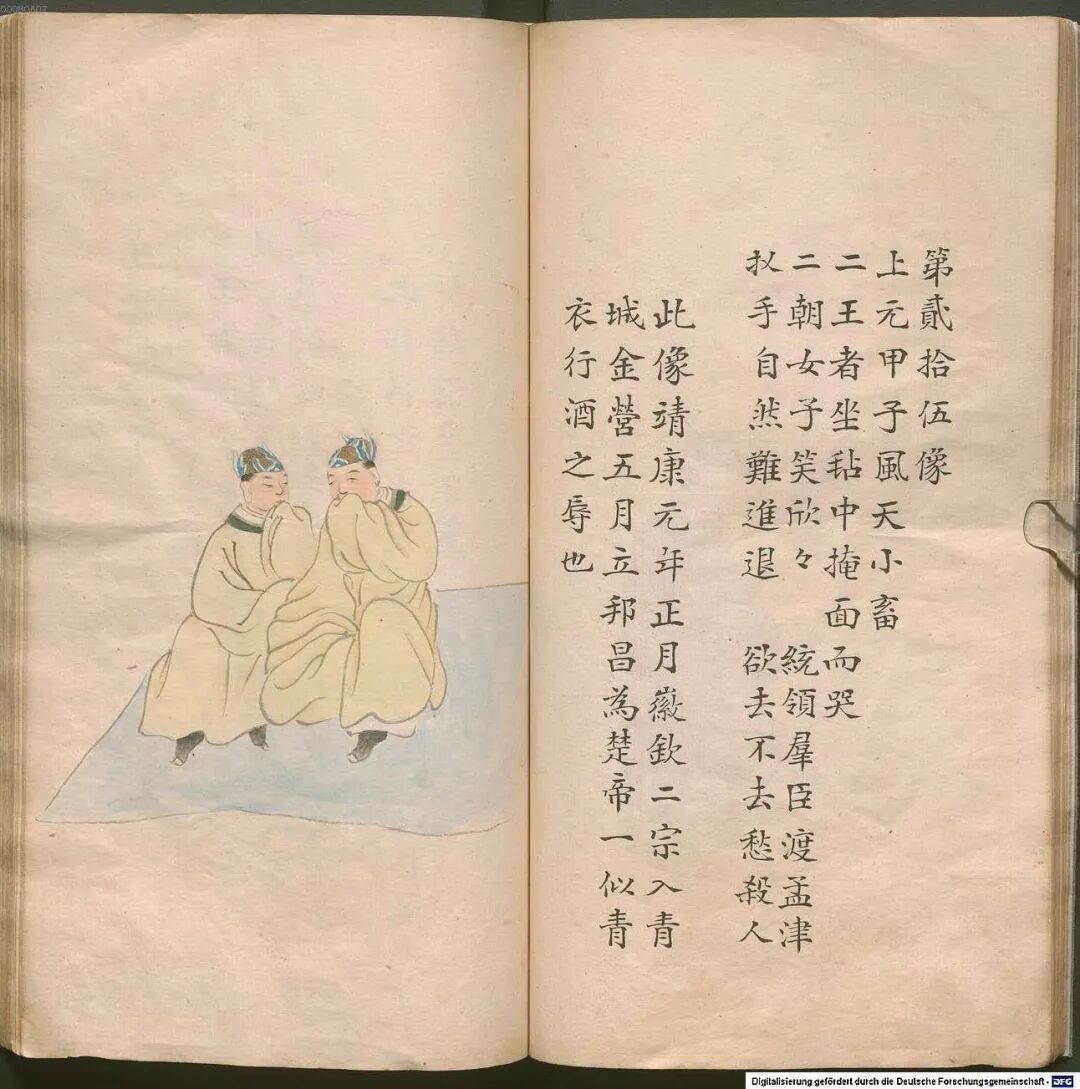 第貳拾伍像
上元甲子風天小畜
二王者坐毡中掩面而哭
二朝女子笑欣々 統領羣臣渡孟津
扠手自然難進退 欲去不去愁殺人
此像靖康元年正月徽欽二宗入青
城金營五月立邦昌為楚帝一似青
衣行酒之辱也
00080607
Digitalisierung gefördert durch die Deutsche Forschungsgemeinschaft - DFG